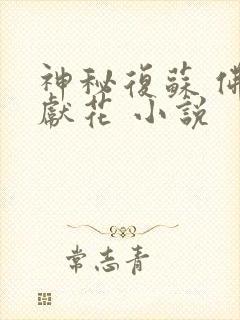 神秘復蘇 佛
獻花 小說
常志青